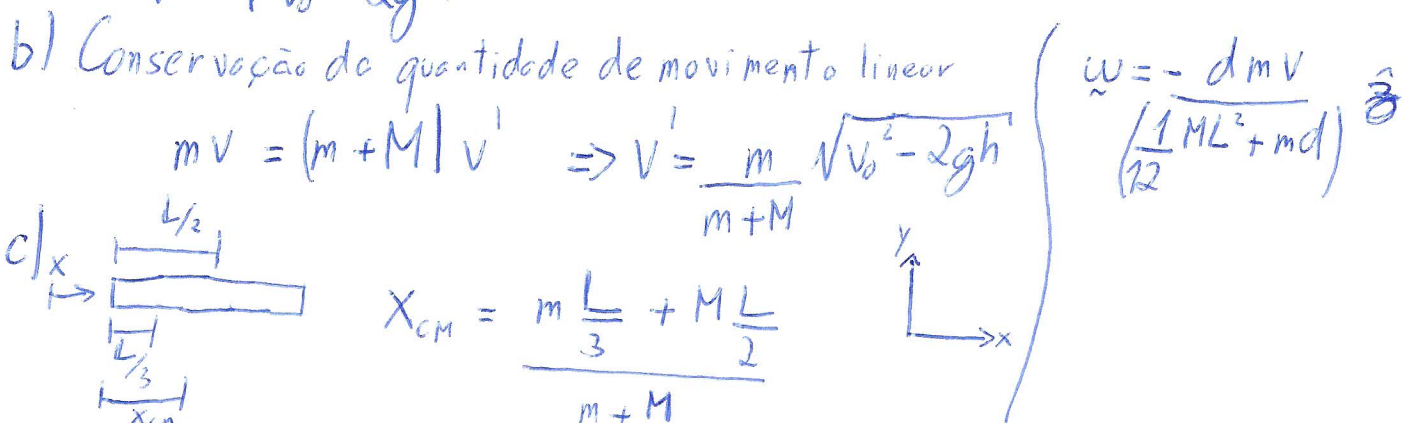 b) Conservação da quantidade de movimento linear
mv = (m+M) v' => v' = m/(m+M) √(v₀² - 2gh)
c) x
L/2
L/3
xcm
X_CM = (m L/3 + M L/2)/(m+M)
y
x
ω = - dmv/(1/12 ML² + md) ẑ